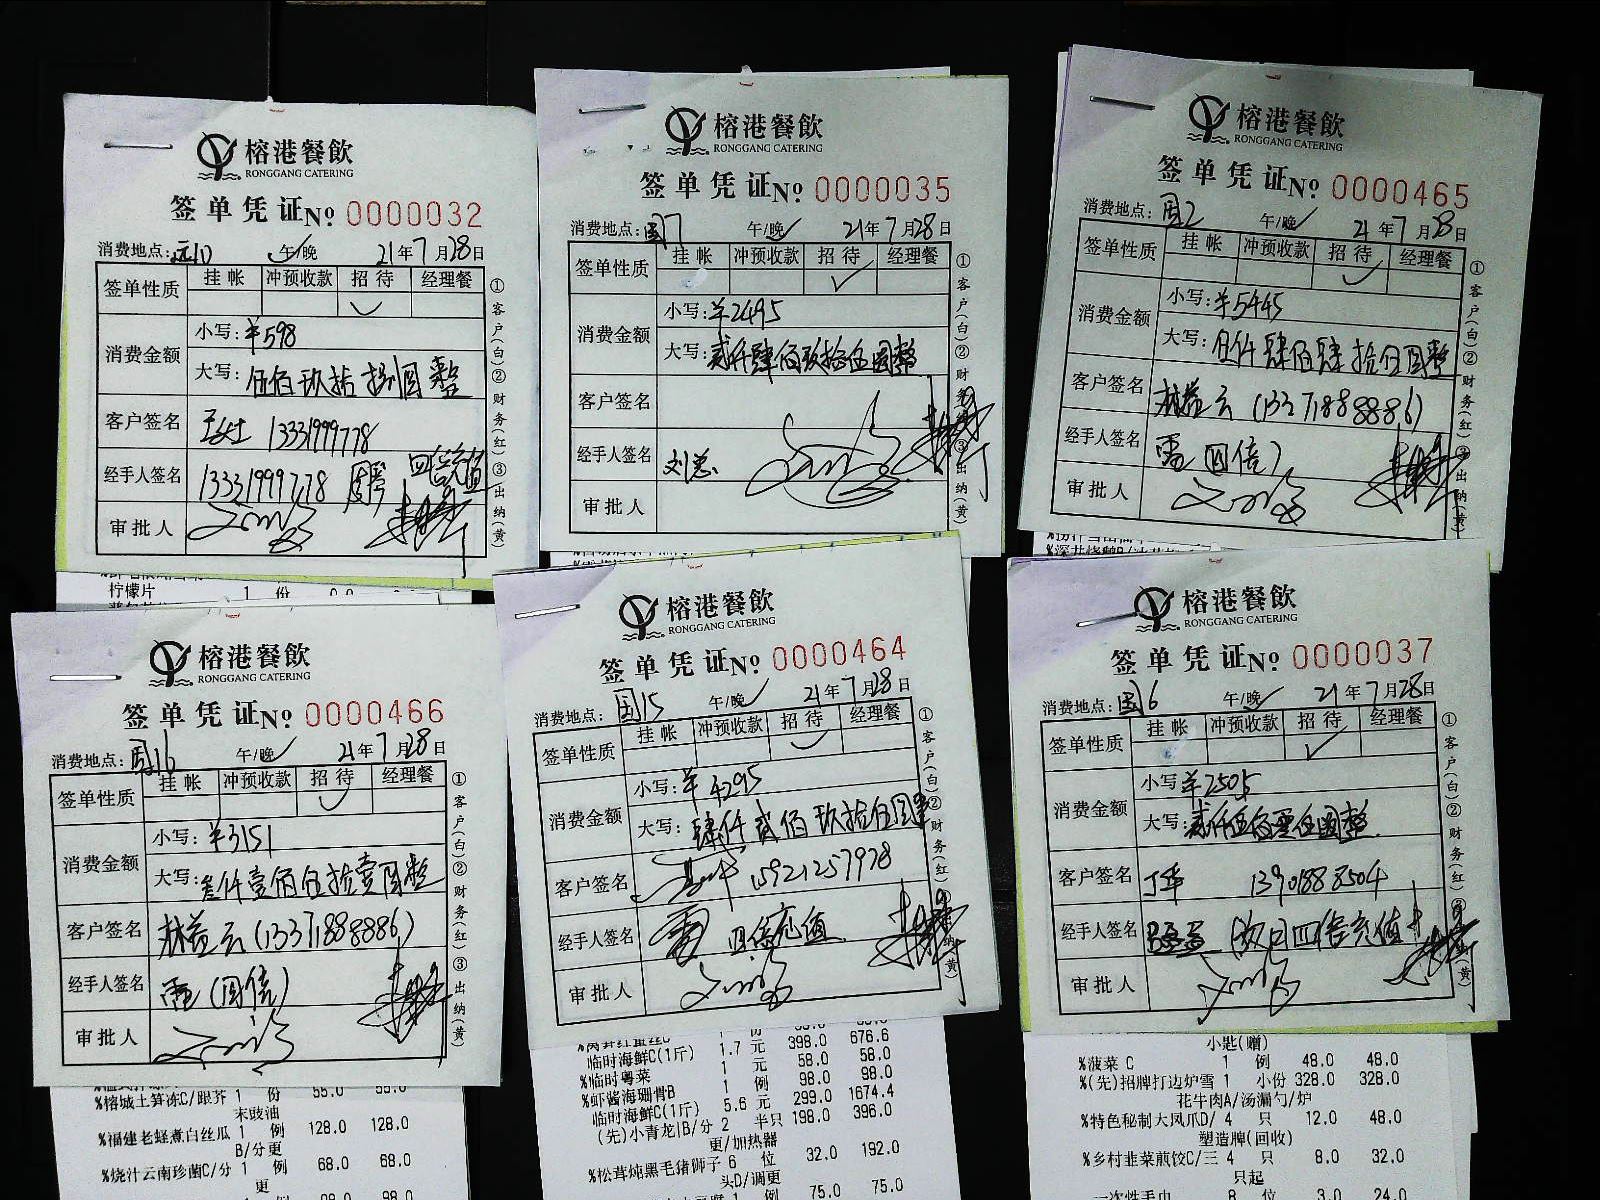 榕港餐飲
RONGGANG CATERING
签单凭证 No 0000032
消费地点: 午/晚 21年7月28日
签单性质 挂帐 冲预收款 招待 经理餐
消费金额 小写: ¥598
大写: 伍佰玖拾捌圆整
客户签名 13331999778
经手人签名 13331999778 四倍充值
审批人
①客户(白)②财务(红)③出纳(黄)
柠檬片 1 份 0.0
榕港餐飲
RONGGANG CATERING
签单凭证 No 0000035
消费地点: 国7 午/晚 21年7月28日
签单性质 挂帐 冲预收款 招待 经理餐
消费金额 小写: ¥2495
大写: 贰仟肆佰玖拾伍圆整
客户签名
经手人签名 刘总
审批人
①客户(白)②财务(红)③出纳(黄)
榕港餐飲
RONGGANG CATERING
签单凭证 No 0000465
消费地点: 国2 午/晚 21年7月28日
签单性质 挂帐 冲预收款 招待 经理餐
消费金额 小写: ¥5445
大写: 伍仟肆佰肆拾伍圆整
客户签名 林益云 (13371888886)
经手人签名 雷 (四倍)
审批人
①客户(白)②财务(红)③出纳(黄)
榕港餐飲
RONGGANG CATERING
签单凭证 No 0000466
消费地点: 国16 午/晚 21年7月28日
签单性质 挂帐 冲预收款 招待 经理餐
消费金额 小写: ¥3151
大写: 叁仟壹佰伍拾壹圆整
客户签名 林益云 (13371888886)
经手人签名 雷 (四倍)
审批人
①客户(白)②财务(红)③出纳(黄)
%榕城土笋冻C/跟芥 1 份 55.0 55.0
末豉油
%福建老蛏煮白丝瓜 1 例 128.0 128.0
B/分更
%烧汁云南珍菌C/分 1 例 68.0 68.0
更
榕港餐飲
RONGGANG CATERING
签单凭证 No 0000464
消费地点: 国15 午/晚 21年7月28日
签单性质 挂帐 冲预收款 招待 经理餐
消费金额 小写: ¥4295
大写: 肆仟贰佰玖拾伍圆整
客户签名 15921257978
经手人签名 雷 四倍充值
审批人
①客户(白)②财务(红)③出纳(黄)
临时海鲜C(1斤) 1.7 元 398.0 676.6
%临时粤菜 1 元 58.0 58.0
%虾酱海珊骨B 1 例 98.0 98.0
临时海鲜C(1斤) 5.6 元 299.0 1674.4
(先)小青龙|B/分 2 半只 198.0 396.0
更/加热器
%松茸炖黑毛猪狮子 6 位 32.0 192.0
头D/调更
1 例 75.0 75.0
榕港餐飲
RONGGANG CATERING
签单凭证 No 0000037
消费地点: 国6 午/晚 21年7月28日
签单性质 挂帐 冲预收款 招待 经理餐
消费金额 小写: ¥2505
大写: 贰仟伍佰零伍圆整
客户签名 丁华 13901888504
经手人签名 四倍充值
审批人
①客户(白)②财务(红)③出纳(黄)
小匙(赠)
%菠菜 C 1 例 48.0 48.0
%(先)招牌打边炉雪 1 小份 328.0 328.0
花牛肉A/汤漏勺/炉
%特色秘制大凤爪D/ 4 只 12.0 48.0
塑造牌(回收)
%乡村韭菜煎饺C/三 4 只 8.0 32.0
只起
一次性手巾 8 位 3.0 24.0